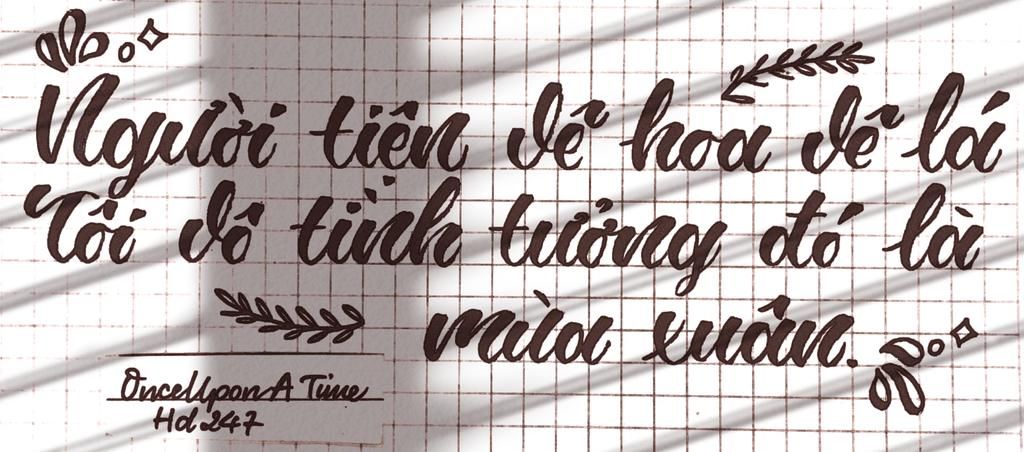 Người tiện vẽ hoa vẽ lá
Tôi vô tình tưởng đó là
mùa xuân.
OnceUpon A Time
Hd 247